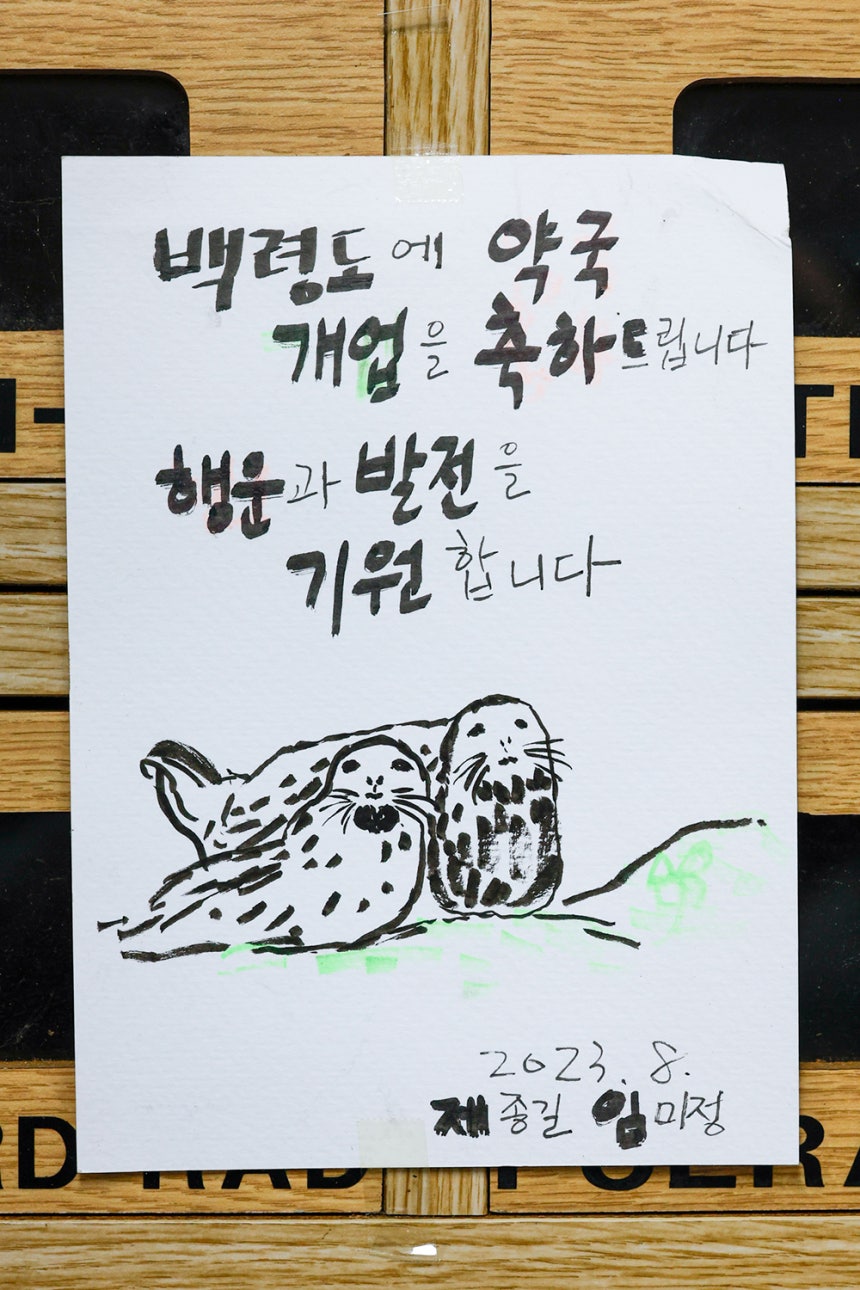 백령도에 약국
개업을 축하드립니다
행운과 발전을
기원합니다
2023. 8.
제종길 임미정